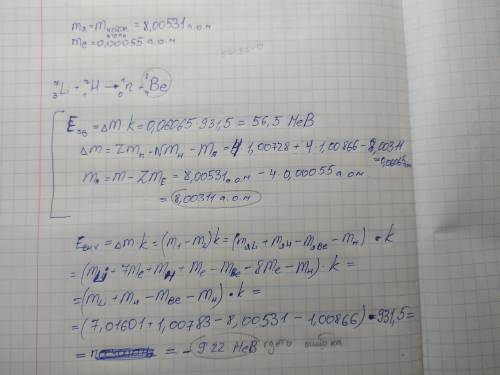 mя = m нейтр. атома = 8,00531 а.о.м
me = 0,00055 а.о.м
⁷₃Li + ²₁H → ¹₀n + Be
Eзв = Δm·k = 0,06065·931,5 = 56,5 MeB
Δm = Zmp - Nmн - Mя = 4·1,00728 + 4·1,00866 - 8,00311
= 0,06065
mя = m - Zme = 8,00531 а.о.м - 4·0,00055 а.о.м
= 8,00311 а.о.м
Eвих = Δm·k = (m₁ - m₂)k = (mяLi + mяH - mяBe - mн)·k
= (mLi + 7me + mH + me - mBe - 8me - mн)·k =
= (mLi + mH - mBe - mн)·k =
= (7,01601 + 1,00783 - 8,00531 - 1,00866)·931,5 =
= = - 922 MeB где ошибка